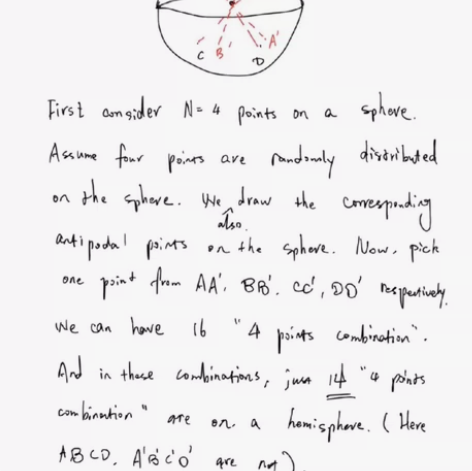 C B D A'
First consider N=4 points on a sphere.
Assume four points are randomly distributed
on the sphere. We also draw the corresponding
antipodal points on the sphere. Now, pick
one point from AA', BB', CC', DD' respectively.
We can have 16 "4 points combination".
And in these combinations, just 14 "4 points
combination" are on a hemisphere. (Here
ABCD, A'B'C'D' are not).